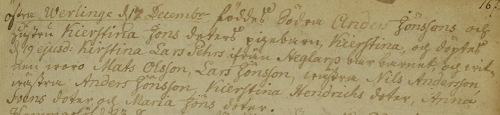 östra Werlinge d. 17 Decembr föddes Södra Anders Jönssons och
hustru Kierstina Jöns doters pigebarn, Kierstina, och döptes
d. 19 ejusd: Kirstina Lars Pehrs ifrån bar barnet, och wit-
nen woro Mats Olsson, Lars Jönsson, Nils Andersson,
Anders Jönsson, Kierstina Hendrichs doter, Anna
Svens doter och Maria Jöns doter.